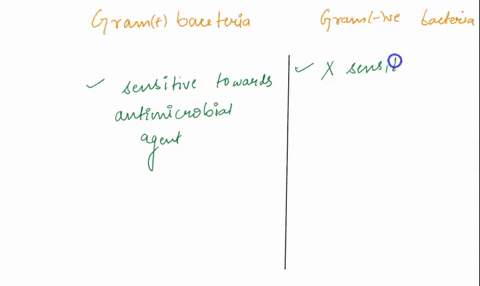 Gram(+) bacteria
Gram(-)ve bacteria
✓ sensitive towards
antimicrobial
agent
✓ X sensi